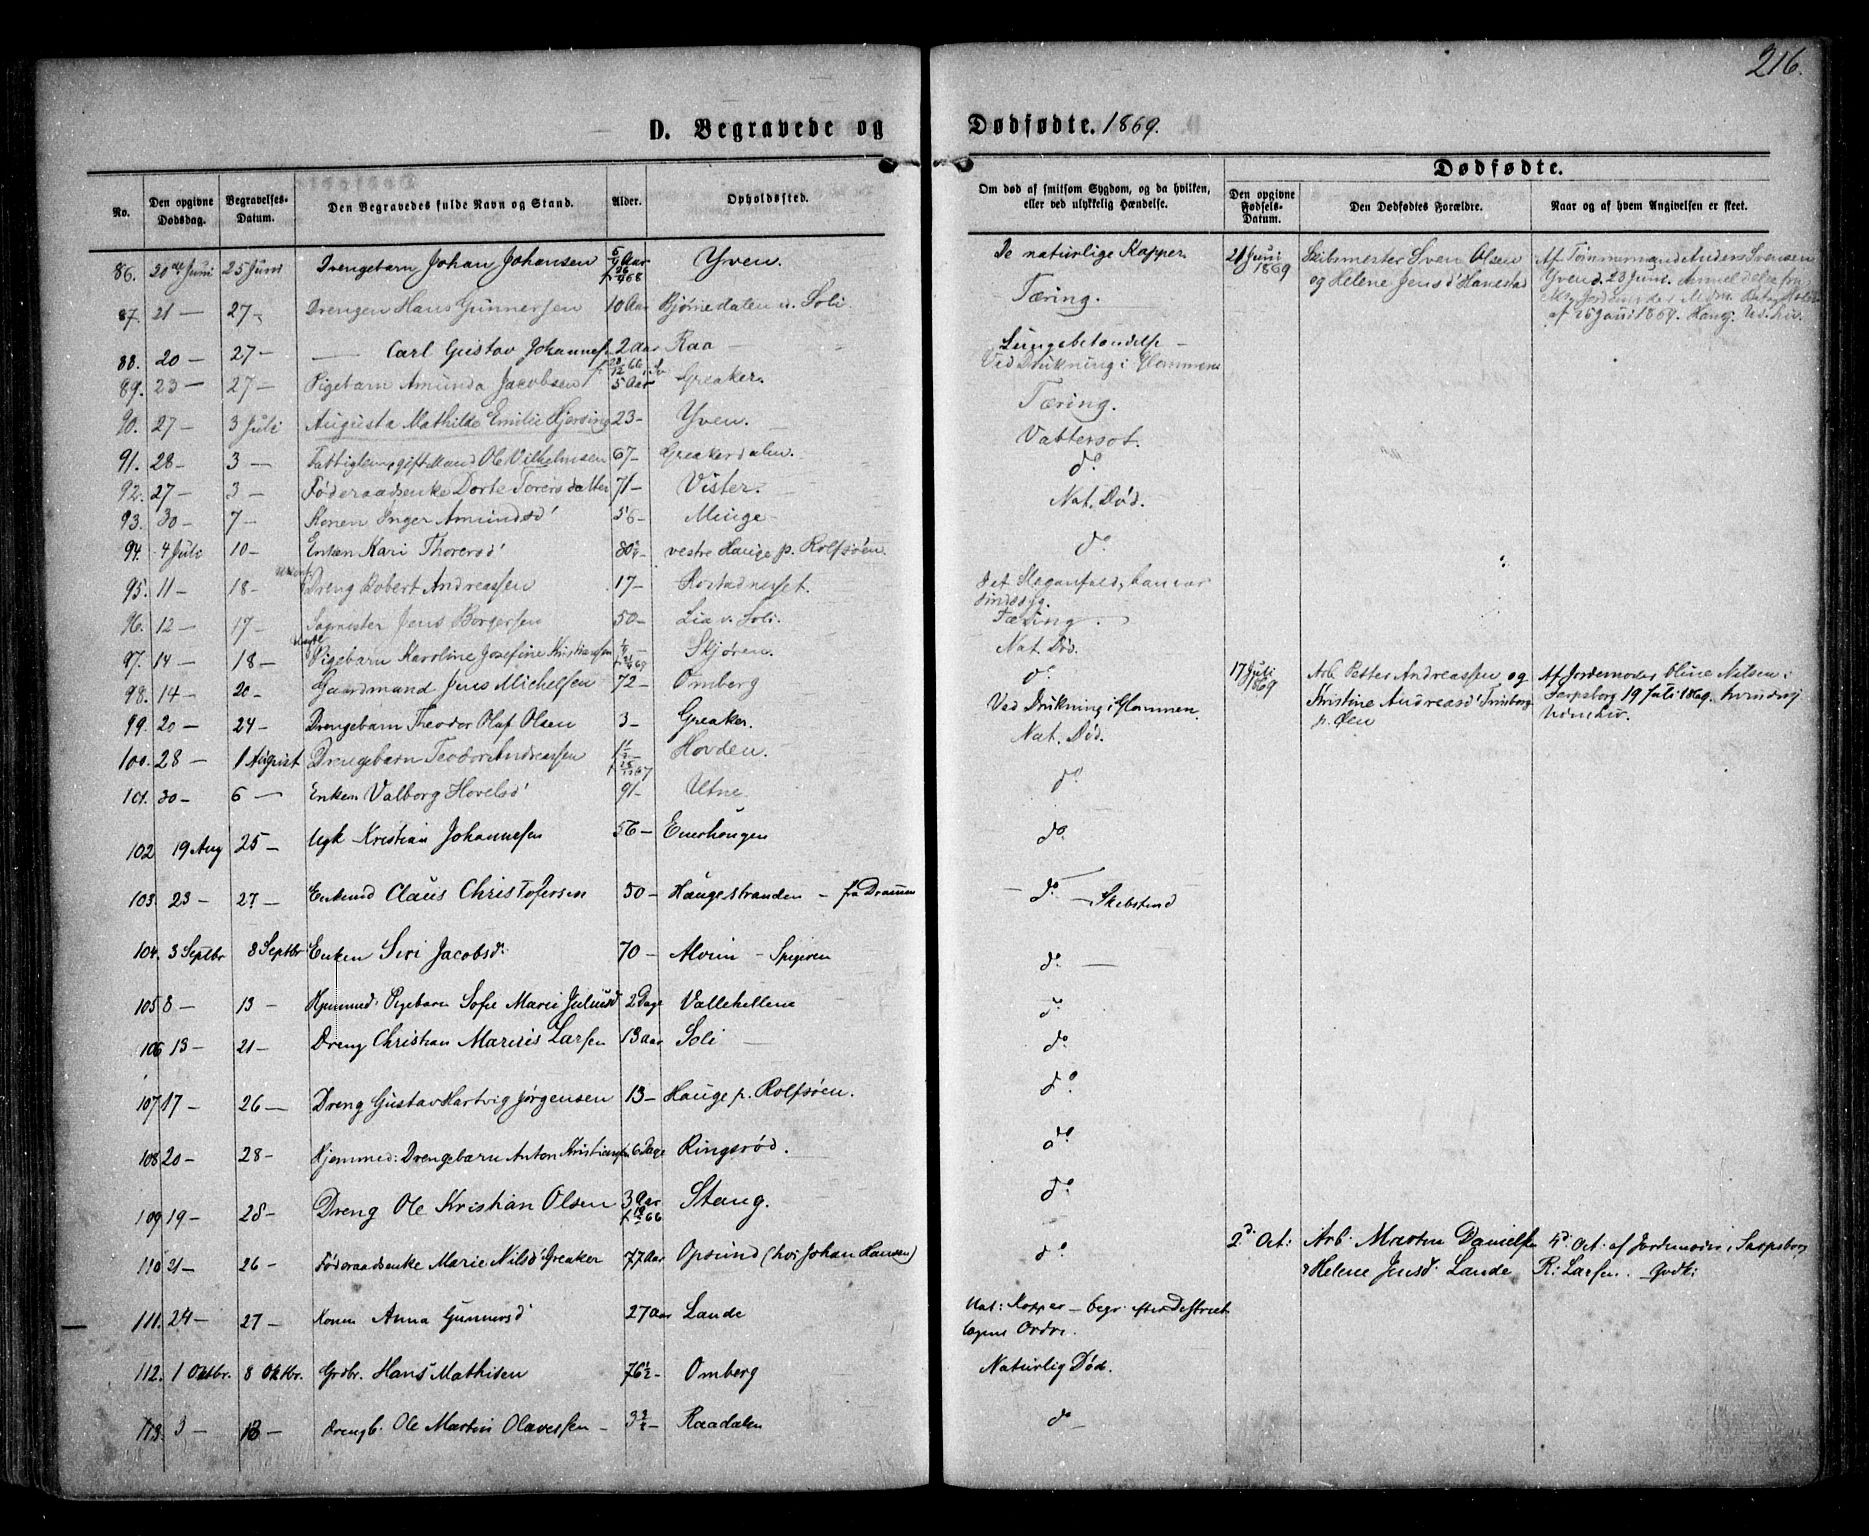 216.
D. Begravede og Dødfødte. 1869.
Dødfødte.
No. Den opgivne Dødsdag. Begravelses-Datum. Den Begravedes fulde Navn og Stand. Alder. Opholdssted. Om død af smitsom Sygdom, og da hvilken, eller ved ulykkelig Hændelse. Den opgivne Fødsels-Datum. Den Dødfødtes Forældre. Naar og af hvem Angivelsen er skeet.
86. 20 Juni 25 Juni Drengebarn Johan Johansen Aar Yven. De naturlige Kopper 21 Juni 1869 Skibsmester Sven Olsen Af Tømmermand Anders Svensen
og Helene Jensd Hanestad Yven d. 23 Juni.
87. 21 — 27 - Drengen Hans Gunnersen 10 Aar Bjørnedalen u. Soli Tæring.
af 25 Juni 1869.
88. 20 — 27 — — Carl Gustav Johannes 2 Aar Raa — Lungebetændelse —
89. 23 — 27 — Pigebarn Amunda Jacobsen 5 Aar Greaker. Ved Drukning i Glommen
90. 27 — 3 Juli Augusta Mathilde Emilie 23 — Yven. Tæring.
91. 28 — 3 — gift Mand Ole Vilhelmsen 67 — Greakerdalen. Vattersot.
92. 27 — 3 — Føderaadsenke Dorte Torersdatter 71 — Vister. do
93. 30 — 7 — Konen Inger Amundsd 56 — Minge — Nat. Død.
94. 4 Juli 10 — Enken Kari Thorersd 80 — vestre Hauge p. Rolfsøen do
95. 11 — 18 — Dreng Robert Andreassen 17 — det Slaganfald, han var
sindssyg.
96. 12 — 17 — Sagmester Jens Borgersen 50 — Lia v. Soli. Tæring.
97. 14 — 18 — Pigebarn Karoline Josefine Kristiansen Skjøren. Nat. Død.
98. 14 — 20 - Gaardmand Jens Michelsen 72 — Omberg do 17 Juli 1869 Arb. Petter Andreassen og Af Jordemoder Nilsen i
Kristine Andreasd Sarpsborg 19 Juli 1869.
p. Øen
99. 20 — 24 — Drengebarn Theodor Olaf Olsen 3 — Greaker. Ved Drukning i Glommen.
100. 28 — 1 August Drengebarn Teodor Andreassen Hovden. Nat. Død.
101. 30 — 6 — Enken Valborg Hovelsd 91 — Utne do
102 19 Aug 25 — Ugk Kristian Johannesen 56 — Enerhougen do
103. 23 — 27 — Enkemd Claus Christofersen 50 — Haugestranden — fra Drammen — do — Skibstmd
104. 3 Septbr 8 Septbr Enken Siri Jacobsd: 70 — Alvim — Spigeren do —
105 8 — 13 — Hjemmed: Pigebarn Sofie Marie Juliusd 2 Dage Vallehellene do
106 13 — 21 — Dreng Christian Marius Larsen 13 Aar Soli — do
107 17 — 26 — Dreng Gustav Hartvig Jørgensen 13 — Hauge p. Rolfsøen. do
108 20 — 28 — Hjemmed: Drengebarn Anton Kristiansen 6 Dage Ringsrød. do
109 19 — 28 — Dreng Ole Kristian Olsen 3 Aar Stang. do
110 21 — 26 — Føderaadsenke Marie Nilsd Greaker 77 Aar Opsund (hos Johan Hansen) do 2d Oct: Arb: Martin Danielsen 4d Oct. af Jordemoder i Sarpsborg
& Helene Jensd. Lande R: Larsen.
111. 24 — 27 — Konen Anna Gunnersd 27 Aar Lande Nat: Kopper — begr. efter Distrikt
lægens Ordre.
112. 1 Oktbr. 8 Oktbr. Grdbr. Hans Mathisen 76½ — Omberg Naturlig Død.
113. 3 — 13 — Drengb. Ole Martin Olavessen — 3 — Raadalen do